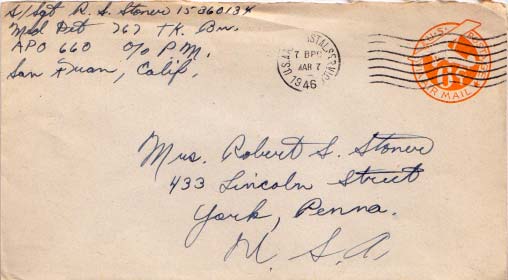 S/Sgt R. S. Stoner 15360134
Med Det 767 TK. Bn.
APO 660 c/o P.M.
San Fran, Calif.
U.S. ARMY POSTAL SERVICE
7 BPO
MAR 7
1946
AIR MAIL
06
Mrs. Robert S. Stoner
433 Lincoln Street
York, Penna.
U. S. A.